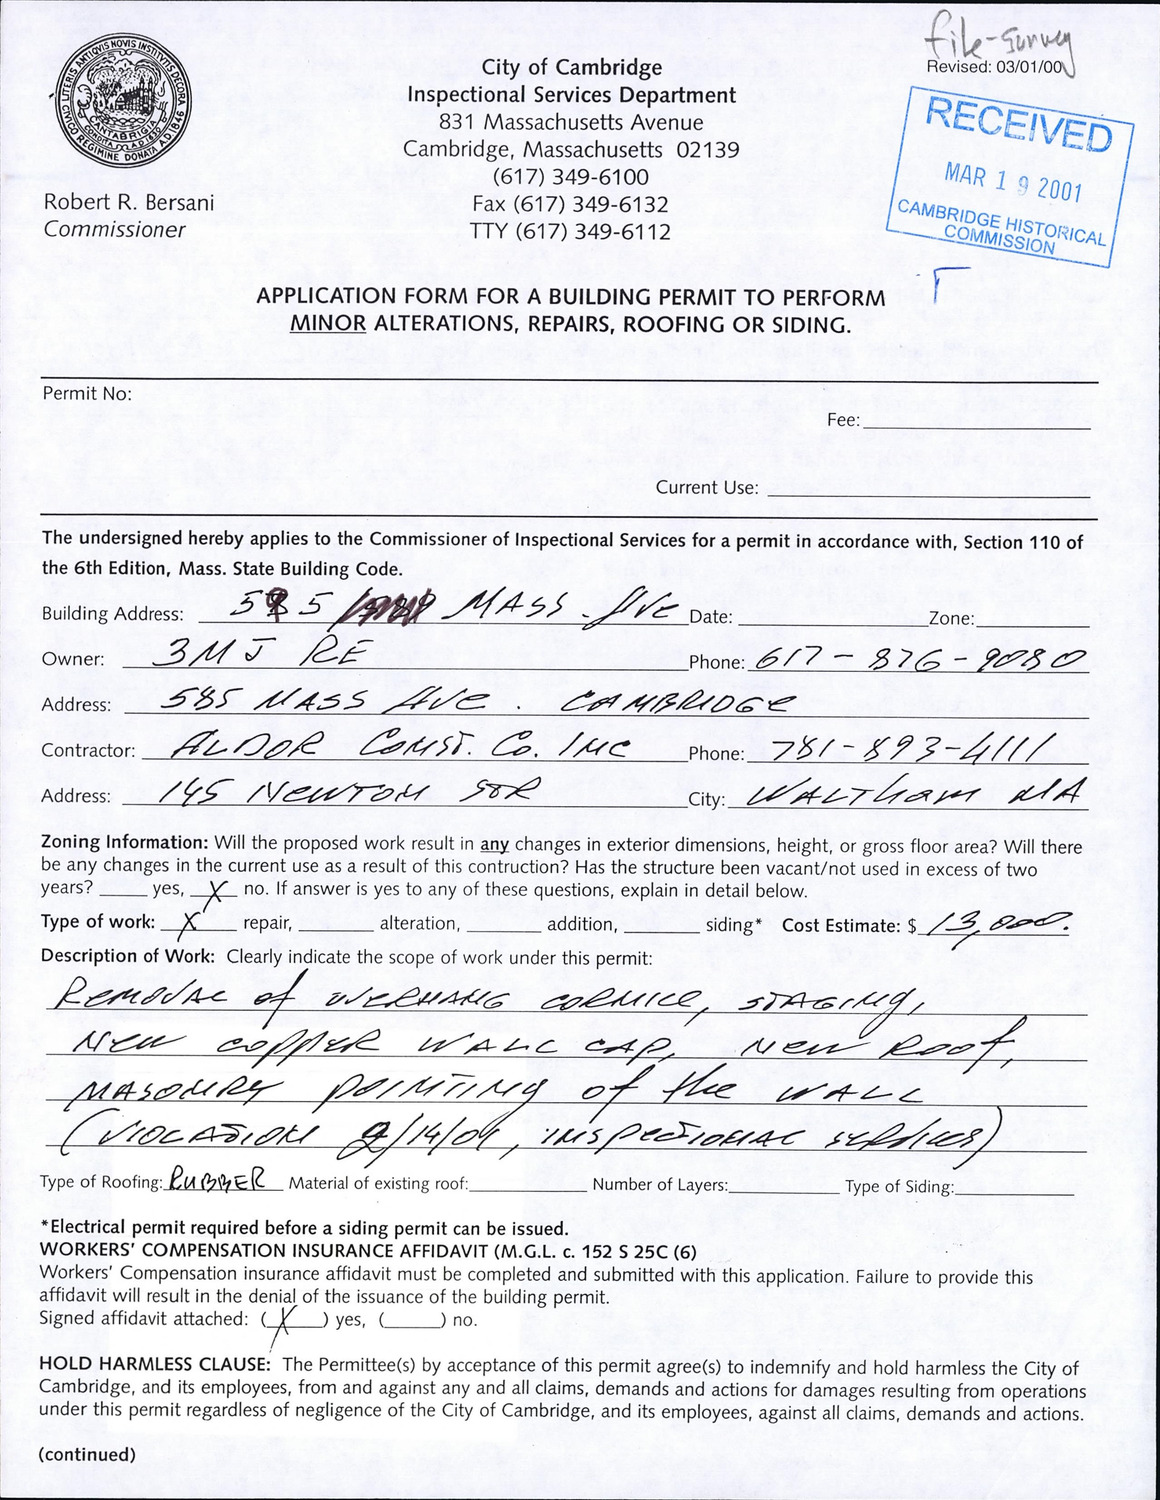 file-survey
Revised: 03/01/00
City of Cambridge
Inspectional Services Department
831 Massachusetts Avenue
Cambridge, Massachusetts 02139
(617) 349-6100
Fax (617) 349-6132
TTY (617) 349-6112
RECEIVED
MAR 19 2001
CAMBRIDGE HISTORICAL
COMMISSION
Robert R. Bersani
Commissioner
APPLICATION FORM FOR A BUILDING PERMIT TO PERFORM
MINOR ALTERATIONS, REPAIRS, ROOFING OR SIDING.
Permit No:
Fee:
Current Use:
The undersigned hereby applies to the Commissioner of Inspectional Services for a permit in accordance with, Section 110 of
the 6th Edition, Mass. State Building Code.
Building Address: MASS. AVE Date: Zone:
Owner: 3MJ RE Phone: 617-876-9080
Address: 585 MASS AVE. CAMBRIDGE
Contractor: ALDOR CONST. CO. INC Phone: 781-893-4111
Address: 145 NEWTON STR City: WALTHAM MA
Zoning Information: Will the proposed work result in any changes in exterior dimensions, height, or gross floor area? Will there
be any changes in the current use as a result of this contruction? Has the structure been vacant/not used in excess of two
years? yes, X no. If answer is yes to any of these questions, explain in detail below.
Type of work: X repair, alteration, addition, siding* Cost Estimate: $ 13,000.
Description of Work: Clearly indicate the scope of work under this permit:
REMOVAL of OVERHANG CORNICE, STAGING,
NEW COPPER WALL CAP, NEW ROOF,
MASONRY POINTING of the WALL
(VIOLATION 2/14/01, INSPECTIONAL SERVICES)
Type of Roofing: RUBBER Material of existing roof: Number of Layers: Type of Siding:
*Electrical permit required before a siding permit can be issued.
WORKERS' COMPENSATION INSURANCE AFFIDAVIT (M.G.L. c. 152 S 25C (6)
Workers' Compensation insurance affidavit must be completed and submitted with this application. Failure to provide this
affidavit will result in the denial of the issuance of the building permit.
Signed affidavit attached: ( X ) yes, ( ) no.
HOLD HARMLESS CLAUSE: The Permittee(s) by acceptance of this permit agree(s) to indemnify and hold harmless the City of
Cambridge, and its employees, from and against any and all claims, demands and actions for damages resulting from operations
under this permit regardless of negligence of the City of Cambridge, and its employees, against all claims, demands and actions.
(continued)